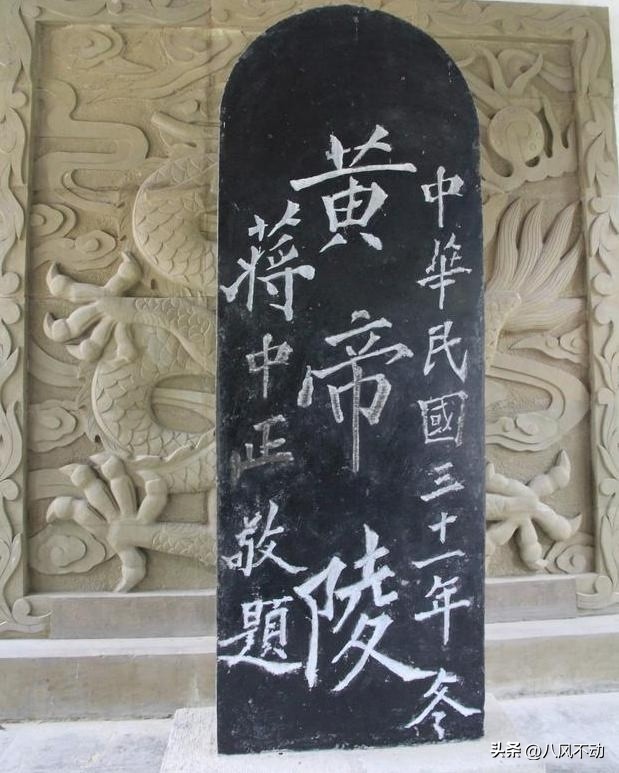 中華民國三十一年冬
黄帝陵
蔣中正敬題
头条 @八风不动